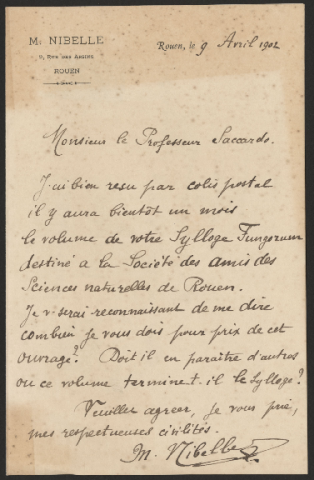 Mce NIBELLE
9, Rue des Arsins
ROUEN
Rouen, le 9 Avril 1902
Monsieur le Professeur Saccardo.
J'ai bien reçu par colis postal
il y aura bientôt un mois
le volume de votre Sylloge Fungorum
destiné a la Société des amis des
Sciences naturelles de Rouen.
Je v/ serai reconnaissant de me dire
combien je vous dois pour prix de cet
ouvrage? Doit il en paraître d'autres
ou ce volume termine t. il le Sylloge?
Veuillez agreer, je vous prie,
mes respectueuses civilités.
M. Nibelle